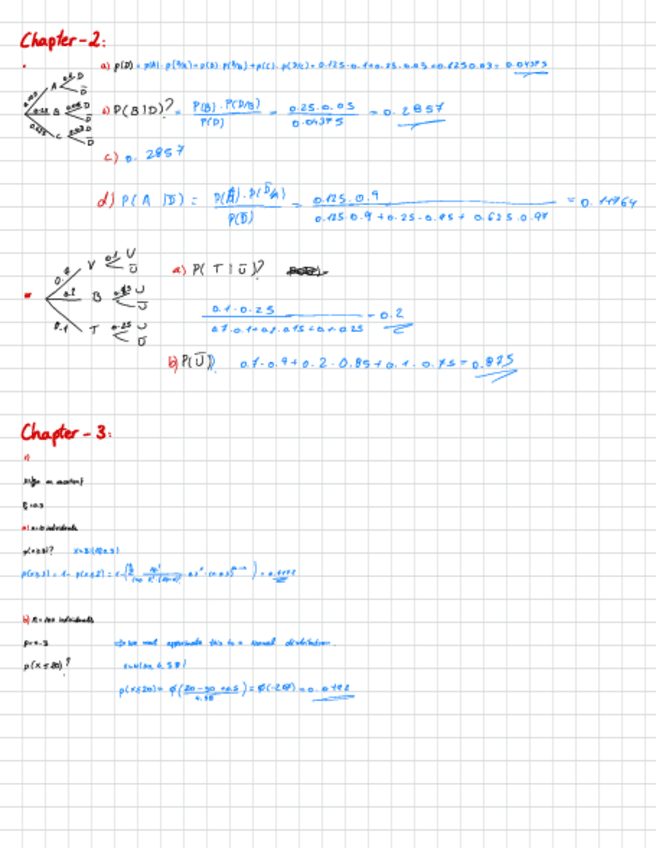 Chapter-2:
a) P(D) = P(A) · P(D/A) + P(B) · P(D/B) + P(C) · P(D/C) = 0.125 · 0.1 + 0.25 · 0.05 + 0.625 · 0.03 = 0.04375
A D D̄
B D D̄
C D D̄
b) P(B|D)? = P(B) · P(D/B) / P(D) = 0.25 · 0.05 / 0.04375 = 0.2857
c) 0.2857
d) P(A|D̄) = P(A) · P(D̄/A) / P(D̄) = 0.125 · 0.9 / 0.125 · 0.9 + 0.25 · 0.95 + 0.625 · 0.97 = 0.11764
0.7 V 0.1 U Ū
0.2 B 0.15 U Ū
0.1 T 0.25 U Ū
a) P(T|Ū)?
0.1 · 0.25 / 0.7 · 0.1 + 0.2 · 0.15 + 0.1 · 0.25 = 0.2
b) P(Ū) 0.7 · 0.9 + 0.2 · 0.85 + 0.1 · 0.75 = 0.875
Chapter - 3:
a) n=10 individuals
p(x≥3)?
p(x≥3) = 1 - p(x≤2) =
b) n = 100 individuals
p=0.3 we must approximate this to a normal distribution.
p(x≤20)?
p(x≤20) = ϕ(20-30+0.5 / 4.58) = ϕ(-2.07) = 0.0192